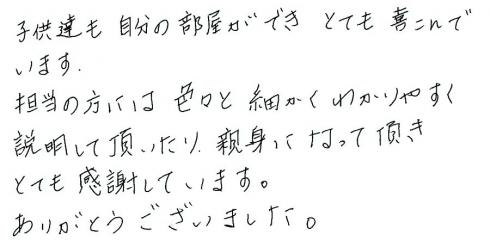 子供達も 自分の部屋ができ とても 喜こんで
います.
担当の方には 色々と 細かく わかりやすく
説明して頂いたり 親身になって頂き
とても 感謝しています。
ありがとうございました。